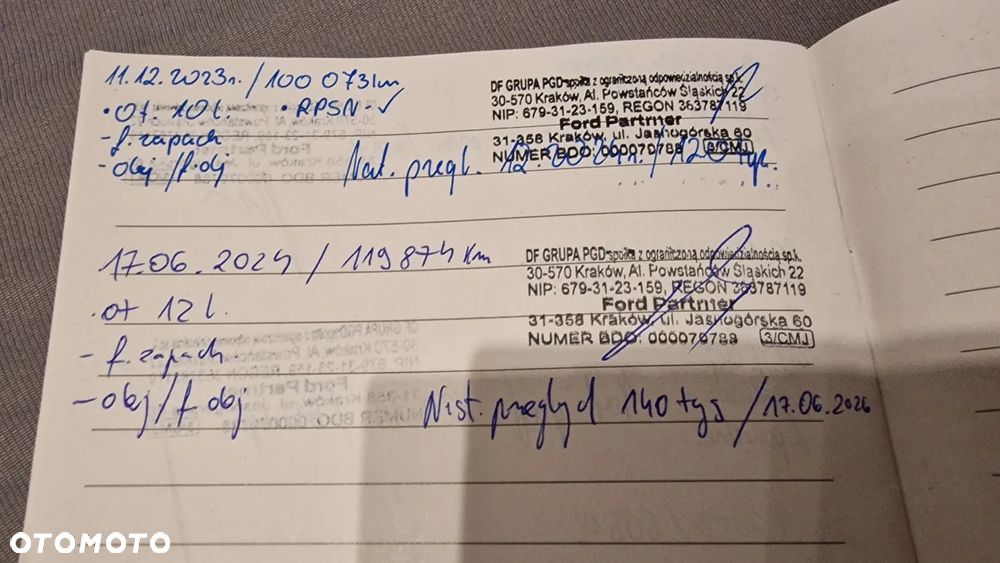 11.12.2023r. / 100 073 km
• ot 10 l. • RPSN - ✓
- f. zapach
- olej / f. olj
DF GRUPA PGD spółka z ograniczoną odpowiedzialnością sp.k.
30-570 Kraków, Al. Powstańców Śląskich 22
NIP: 679-31-23-159, REGON 363787119
Ford Partner
31-358 Kraków, ul. Jasnogórska 60
NUMER BDO: 000070788 3/CMJ
Nast. przegl. 12. / 120 tyś.
17.06.2024 / 119 874 Km
• ot 12 l.
- f. zapach
- olej / f. olj
DF GRUPA PGD spółka z ograniczoną odpowiedzialnością sp.k.
30-570 Kraków, Al. Powstańców Śląskich 22
NIP: 679-31-23-159, REGON 363787119
Ford Partner
31-358 Kraków, ul. Jasnogórska 60
NUMER BDO: 000070788 3/CMJ
Nast. przegląd 140 tys / 17.06.2026
OTOMOTO